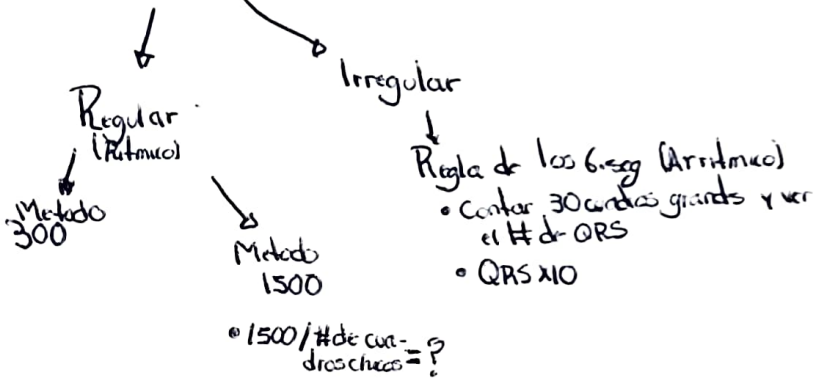 Regular
(Ritmico)
Metodo
300
Metodo
1500
• 1500/#de cua-
dros chicos = ?
Irregular
Regla de los 6.seg (Arritmico)
• Contar 30 cuadros grands y ver
el # de QRS
• QRS x10